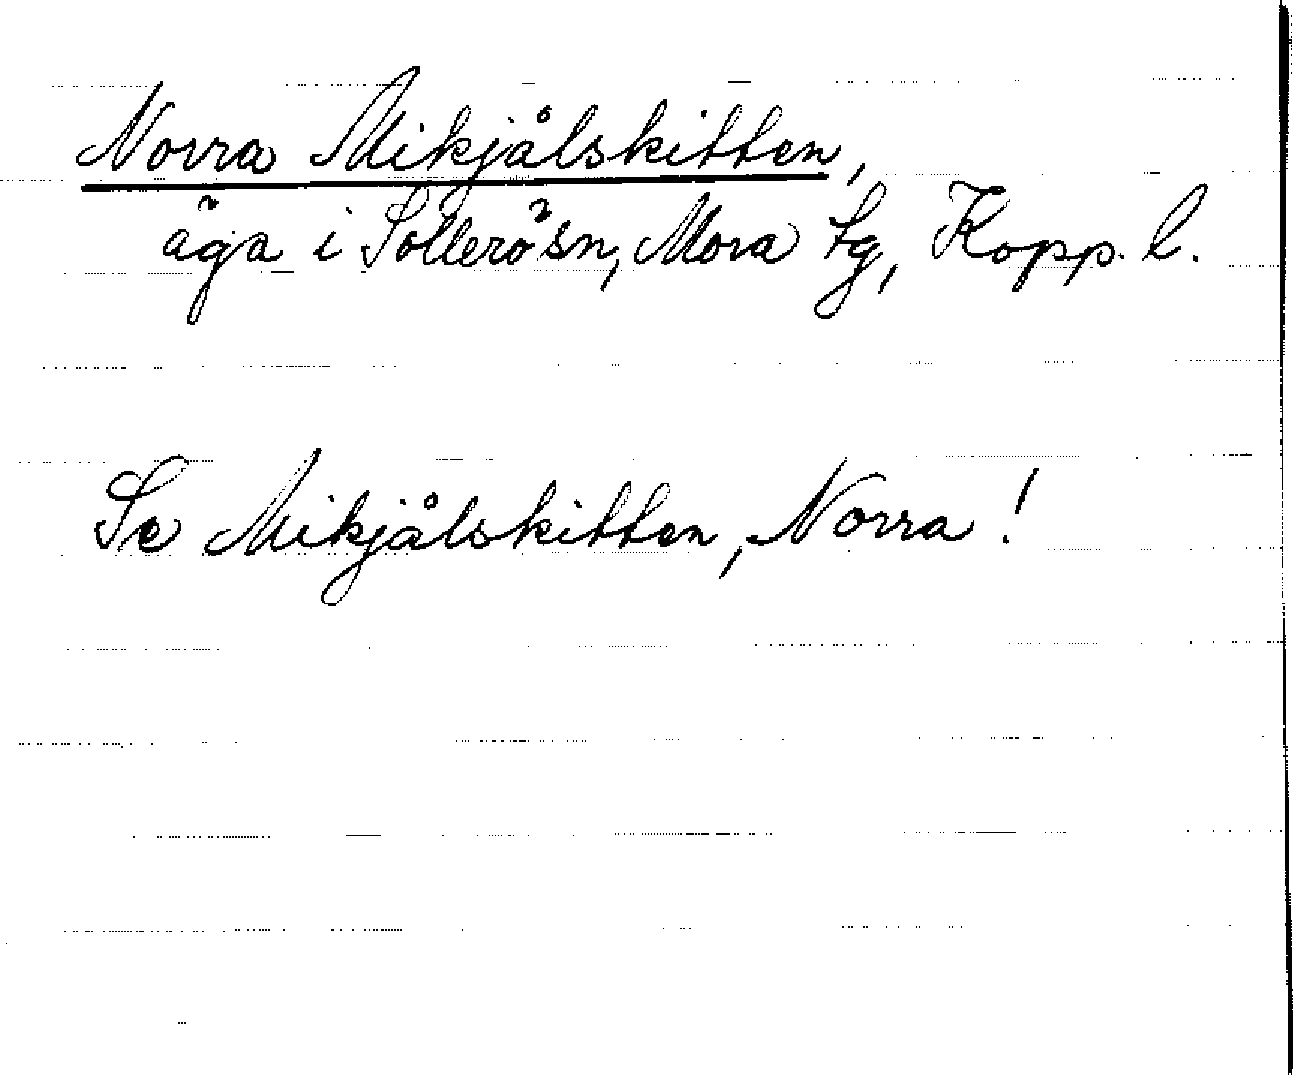 Norra Mikjålskitten,
äga i Sollerö sn, Mora tg, Kopp. l.
Se Mikjålskitten, Norra!